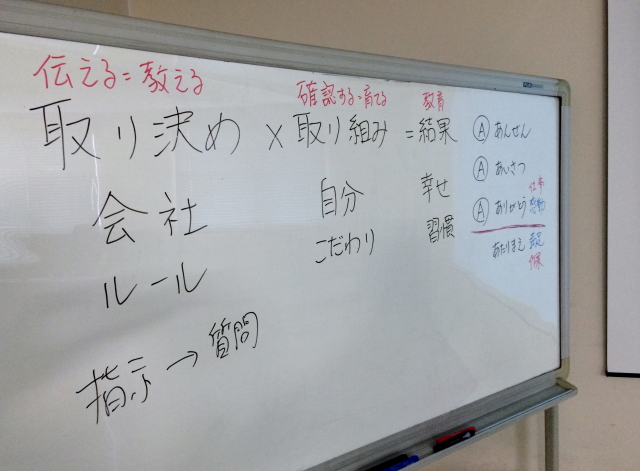 伝える=教える
確認する・育てる
教育
取り決め × 取り組み = 結果
会社
自分
幸せ
ルール
こだわり
習慣
指示 → 質問
Ⓐ あんぜん
Ⓐ あいさつ
Ⓐ ありがとう
仕事
感動
あたりまえ
満足
作業